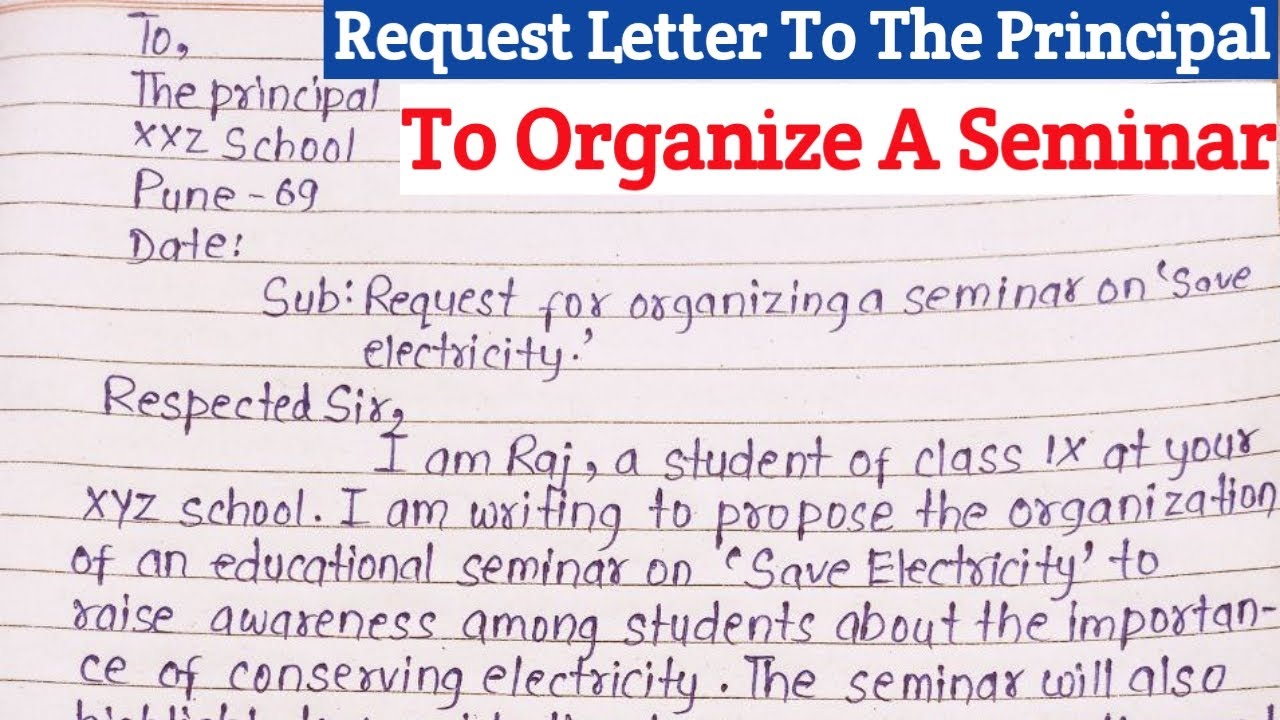 Request Letter To The Principal
To Organize A Seminar
To,
The principal
XXZ School
Pune - 69
Date:
Sub: Request for organizing a seminar on 'Save
electricity.'
Respected Sir,
I am Raj, a student of class IX at your
XYZ school. I am writing to propose the organization
of an educational seminar on 'Save Electricity' to
raise awareness among students about the importan-
ce of conserving electricity. The seminar will also